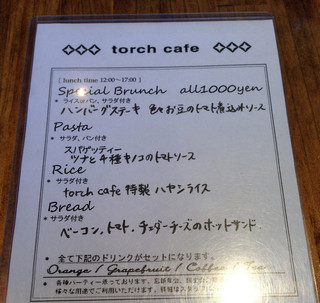 torch cafe
[ lunch time 12:00~17:00 ]
Special Brunch all1000yen
※ ライスorパン、サラダ付き
ハンバーグステーキ 色々お豆のトマト煮込みソース
Pasta
※ サラダ、パン付き
スパゲッティー
ツナと4種キノコのトマトソース
Rice
※サラダ付き
torch cafe 特製 ハヤシライス
Bread
※サラダ付き
ベーコン、トマト、チェダーチーズのホットサンド
※ 全て下記のドリンクがセットになります。
Orange / Grapefruit / Coffee / Tea
※ 各種パーティー承っております。
様々な用途でご利用いただけます。